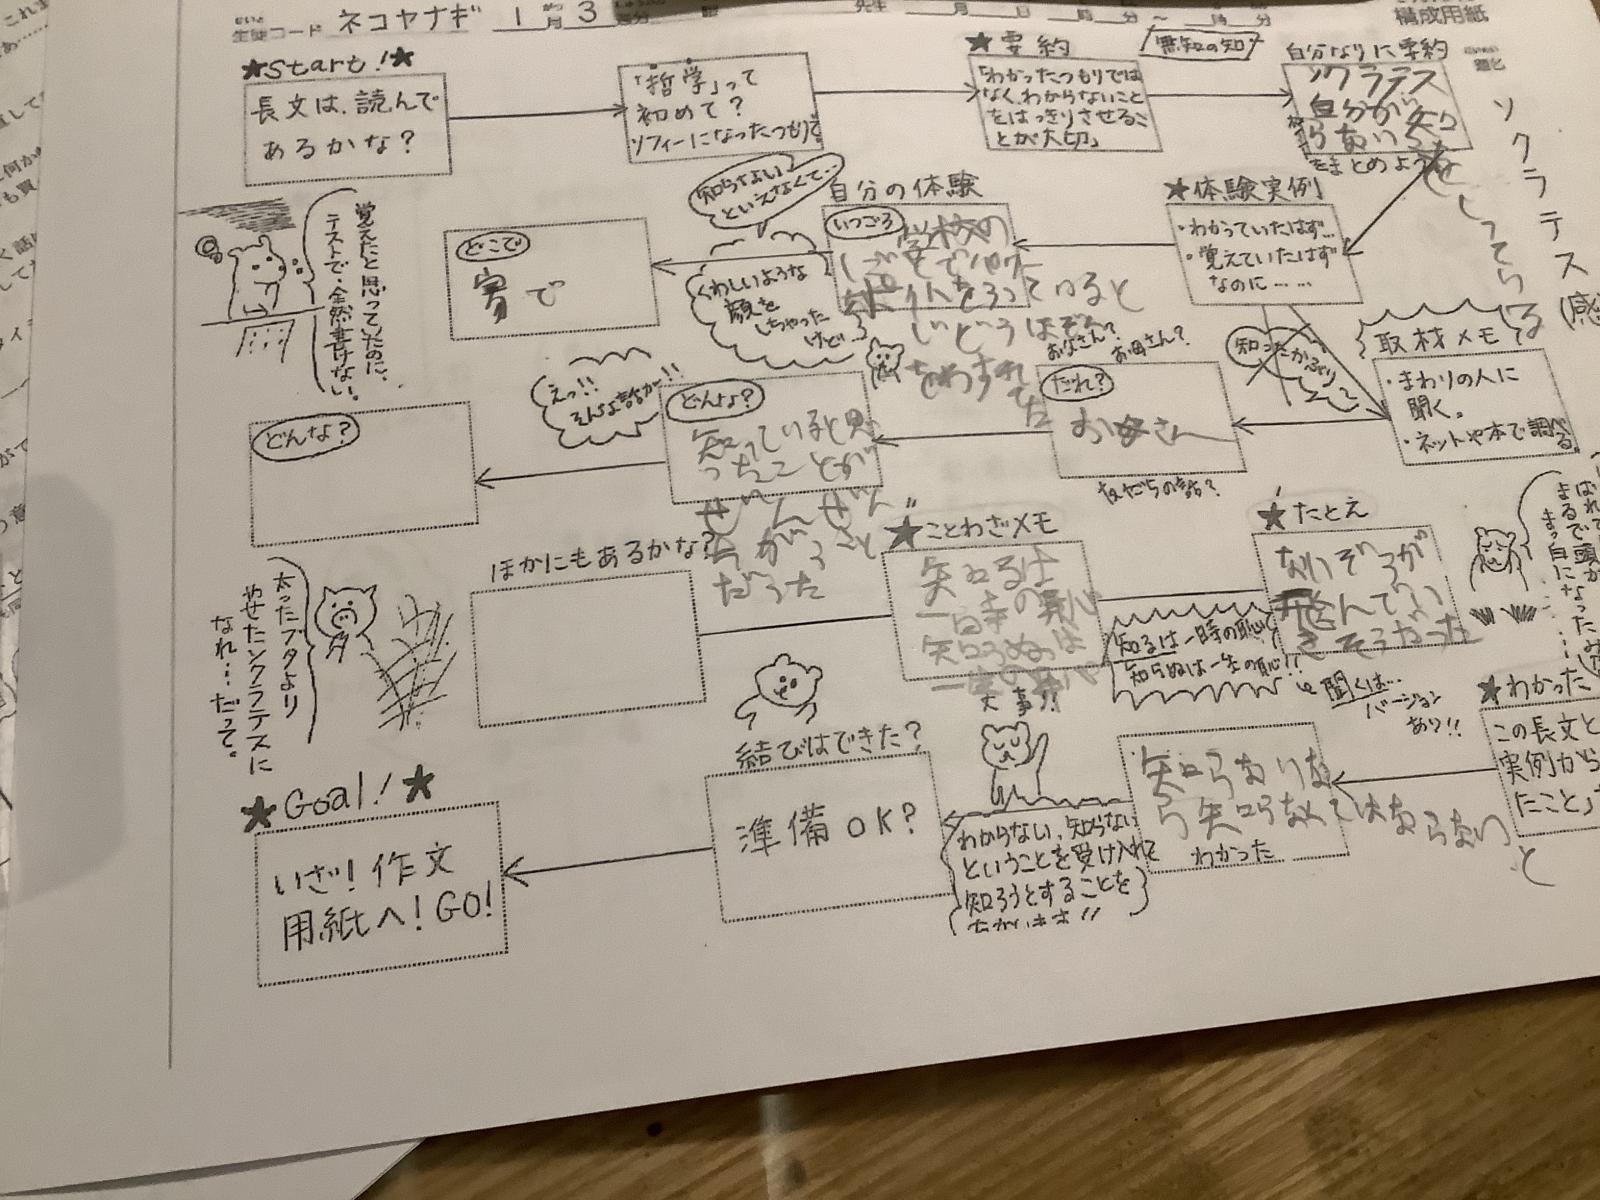 生徒コード ネコヤナギ 1月3
先生 月 日 時 分 ～ 時 分
構成用紙
★Start!★
長文は、読んで
あるかな？
「哲学」って
初めて？
ソフィーになったつもりで
★要約
無知の知
「わかったつもりでは
なく、わからないこと
をはっきりさせるこ
とが大切」
自分なりに要約
ソクラテス
自分が知
らない
をまとめよう
ソクラテス
★体験実例
・わかっていたはず…
・覚えていたはず
なのに……
自分の体験
いつごろ
学校の
知らない
といえなくて…
くわしいような
顔を
しちゃった
けど…
どこで
家で
覚えたと思っていたのに、
テストで、全然書けない。
取材メモ
・まわりの人に
聞く。
・ネットや本で調べる
知ったかぶり
お父さん？
お母さん？
だれ？
お母さん
友だちの話？
どんな？
知っていると思
ったことが
ぜんぜん
ちがうこと
だった
えっ!!
そんな話が!!
どんな？
ほかにもあるかな？
太ったブタより
やせたソクラテスに
なれ…だって。
★ことわざメモ
知るは
一時の恥
知らぬは
一生の恥
大事!!
知るは一時の恥
知らぬは一生の恥!!
聞くは…
バージョン
あり!!
★たとえ
ないぞうが
飛んでい
きそうだった
まるで頭が
まっ白になったみたい
★わかった
この長文と
実例から
たこと」
知らないな
ら知らなくてはならないと
わかった
わからない、知らない
ということを受け入れて
知ろうとすることを
結びはできた？
準備OK？
★Goal!★
いざ！作文
用紙へ！GO!